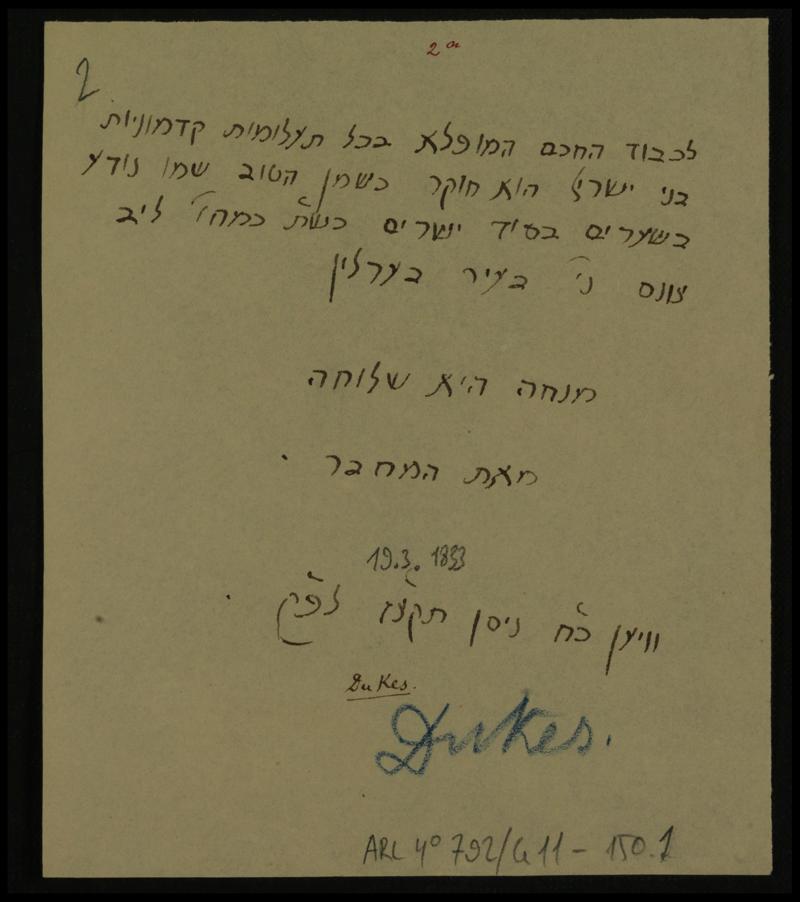 2a
2
לכבוד החכם המופלא בכל תעלומות קדמוניות
בני ישראל הוא חוקר כשמן הטוב שמו נודע
בשערים בסוד ישרים כש"ת כמהו' ליב
צונס ני' בעיר בערלין
מנחה היא שלוחה
מאת המחבר.
19.3.1833
וויען כ"ח ניסן תקצ"ז לפ"ק.
Dukes.
Dukes.
ARC 4° 792/G11 - 150.1